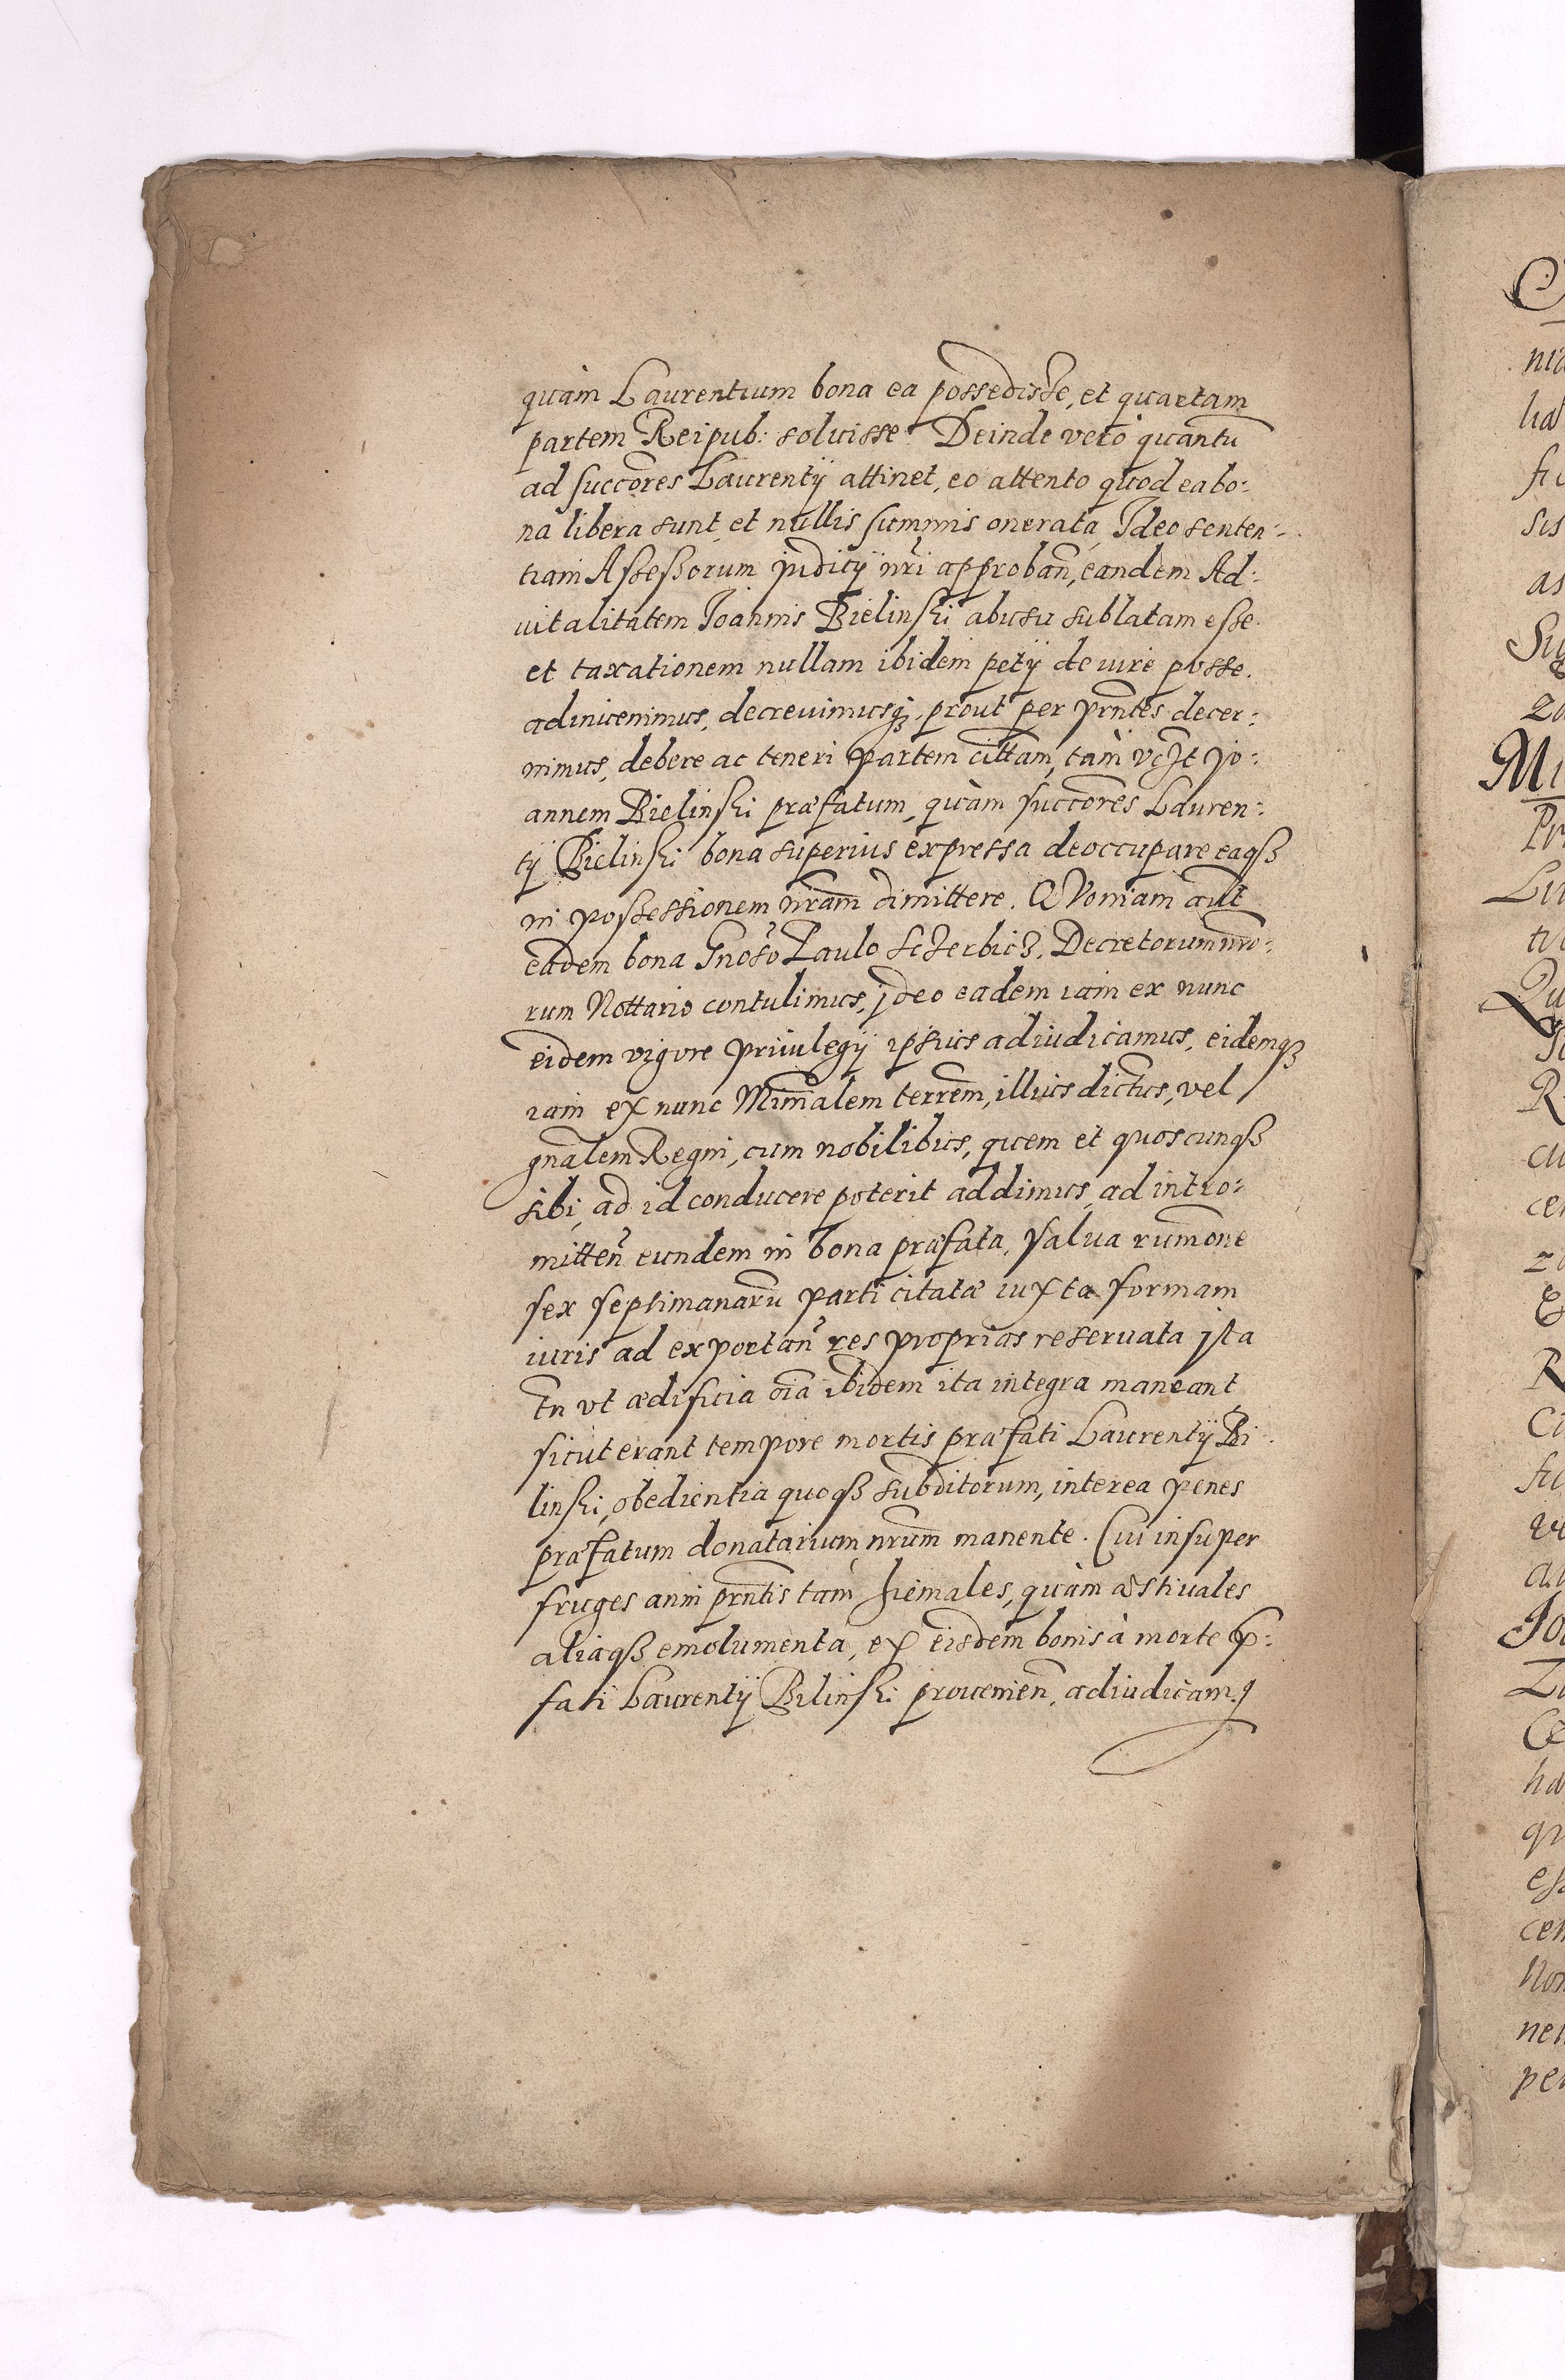 quàm Laurentium bona ea possedisse, et quartam
partem Reipub: soluisse. Deinde vero quantũ
ad succores Laurentij attinet, eo attento quod ea bo:
na libera sunt, et nullis summis onerata, Ideo senten:
tiam Assessorum judicij nri approban, eandem Ad:
uitalitatem Joannis Bielinski abusu sublatam esse
et taxationem nullam ibidem petij de iure posse.
adinuenimus, decreuimusq;, prout per prntes decer:
nimus, debere ac teneri partem cittam, tam vczt Jo:
annem Bielinski præfatum, quàm succores Lauren:
tij Bielinski bona superius expressa deoccupare eaq;
in possessionem nram dimittere. QVoniam aut
eadem bona Gnoso Paulo Sczerbicz, Decretorum nro:
rum Nottario contulimus, jdeo eadem iam ex nunc
eidem vigore priuilegij ipsius adiudicamus, eidemq;
iam ex nunc Mimalem terrem, illius dictus, vel
gnalem Regni, cum nobilibus, quem et quoscunq;
sibi, ad id conducere poterit addimus, ad intro:
mitten eundem in bona præfata, salua rumone
sex septimanarũ parti citatæ iuxta formam
iuris ad exportan res proprias reseruata jta
tn vt ædificia oia ibidem ita integra maneant
sicut erant tempore mortis præfati Laurentij Bi
linski, obedientia quoq; subditorum, interea penes
præfatum donatarium nrum manente. Cui insuper
fruges anni prntis tam hiemales, quàm æstiuales
aliaq; emolumenta, ex eisdem bonis à morte p:
fati Laurentij Bilinski prouenien, adiudicam9